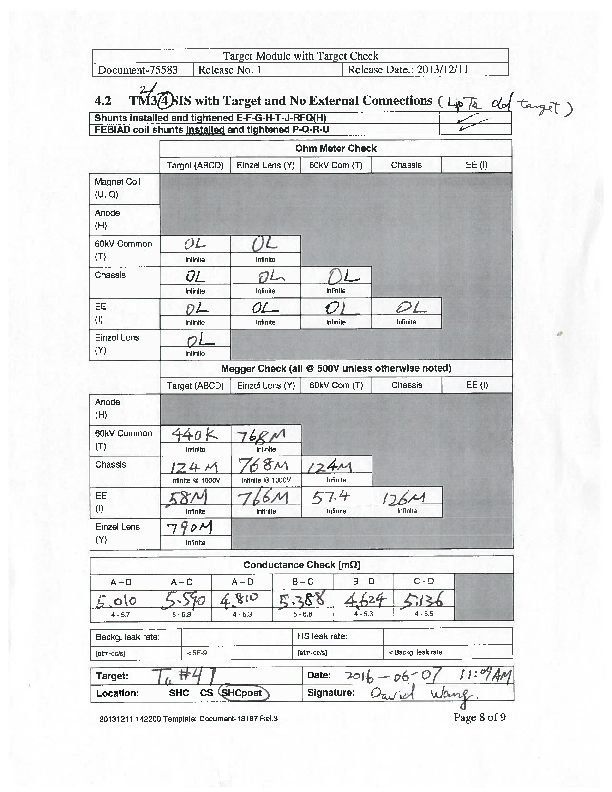 Target Module with Target Check
Document-75583 Release No. 1 Release Date.: 2013/12/11
2/
4.2 TM3/4 SIS with Target and No External Connections ( target )
Shunts installed and tightened E-F-G-H-T-J-RFQ(H) ✓
FEBIAD coil shunts installed and tightened P-Q-R-U ✓
Ohm Meter Check
Target (ABCD) Einzel Lens (Y) 60kV Com (T) Chassis EE (I)
Magnet Coil
(U, Q)
Anode
(H)
60kV Common OL OL
(T) Infinite Infinite
Chassis OL OL OL
Infinite Infinite Infinite
EE OL OL OL OL
(I) Infinite Infinite Infinite Infinite
Einzel Lens OL
(Y) Infinite
Megger Check (all @ 500V unless otherwise noted)
Target (ABCD) Einzel Lens (Y) 60kV Com (T) Chassis EE (I)
Anode
(H)
60kV Common 440K 768M
(T) Infinite Infinite
Chassis 124M 768M 124M
Infinite @ 1000V Infinite @ 1000V Infinite
EE 58M 766M 57.4 126M
(I) Infinite Infinite Infinite Infinite
Einzel Lens 790M
(Y) Infinite
Conductance Check [mΩ]
A – C B – C C - D
5.010 5.590 4.810 5.388 4.624 5.136
Backg. leak rate: HS leak rate:
[atm-cc/s] < 5E-9 [atm-cc/s] < Backg. leak rate
Target: Ta #41 Date: 2016-06-07 11:09 AM
Location: SHC CS SHCpost Signature: David Wang
20131211 142200 Template: Document-18187 Rel.3 Page 8 of 9